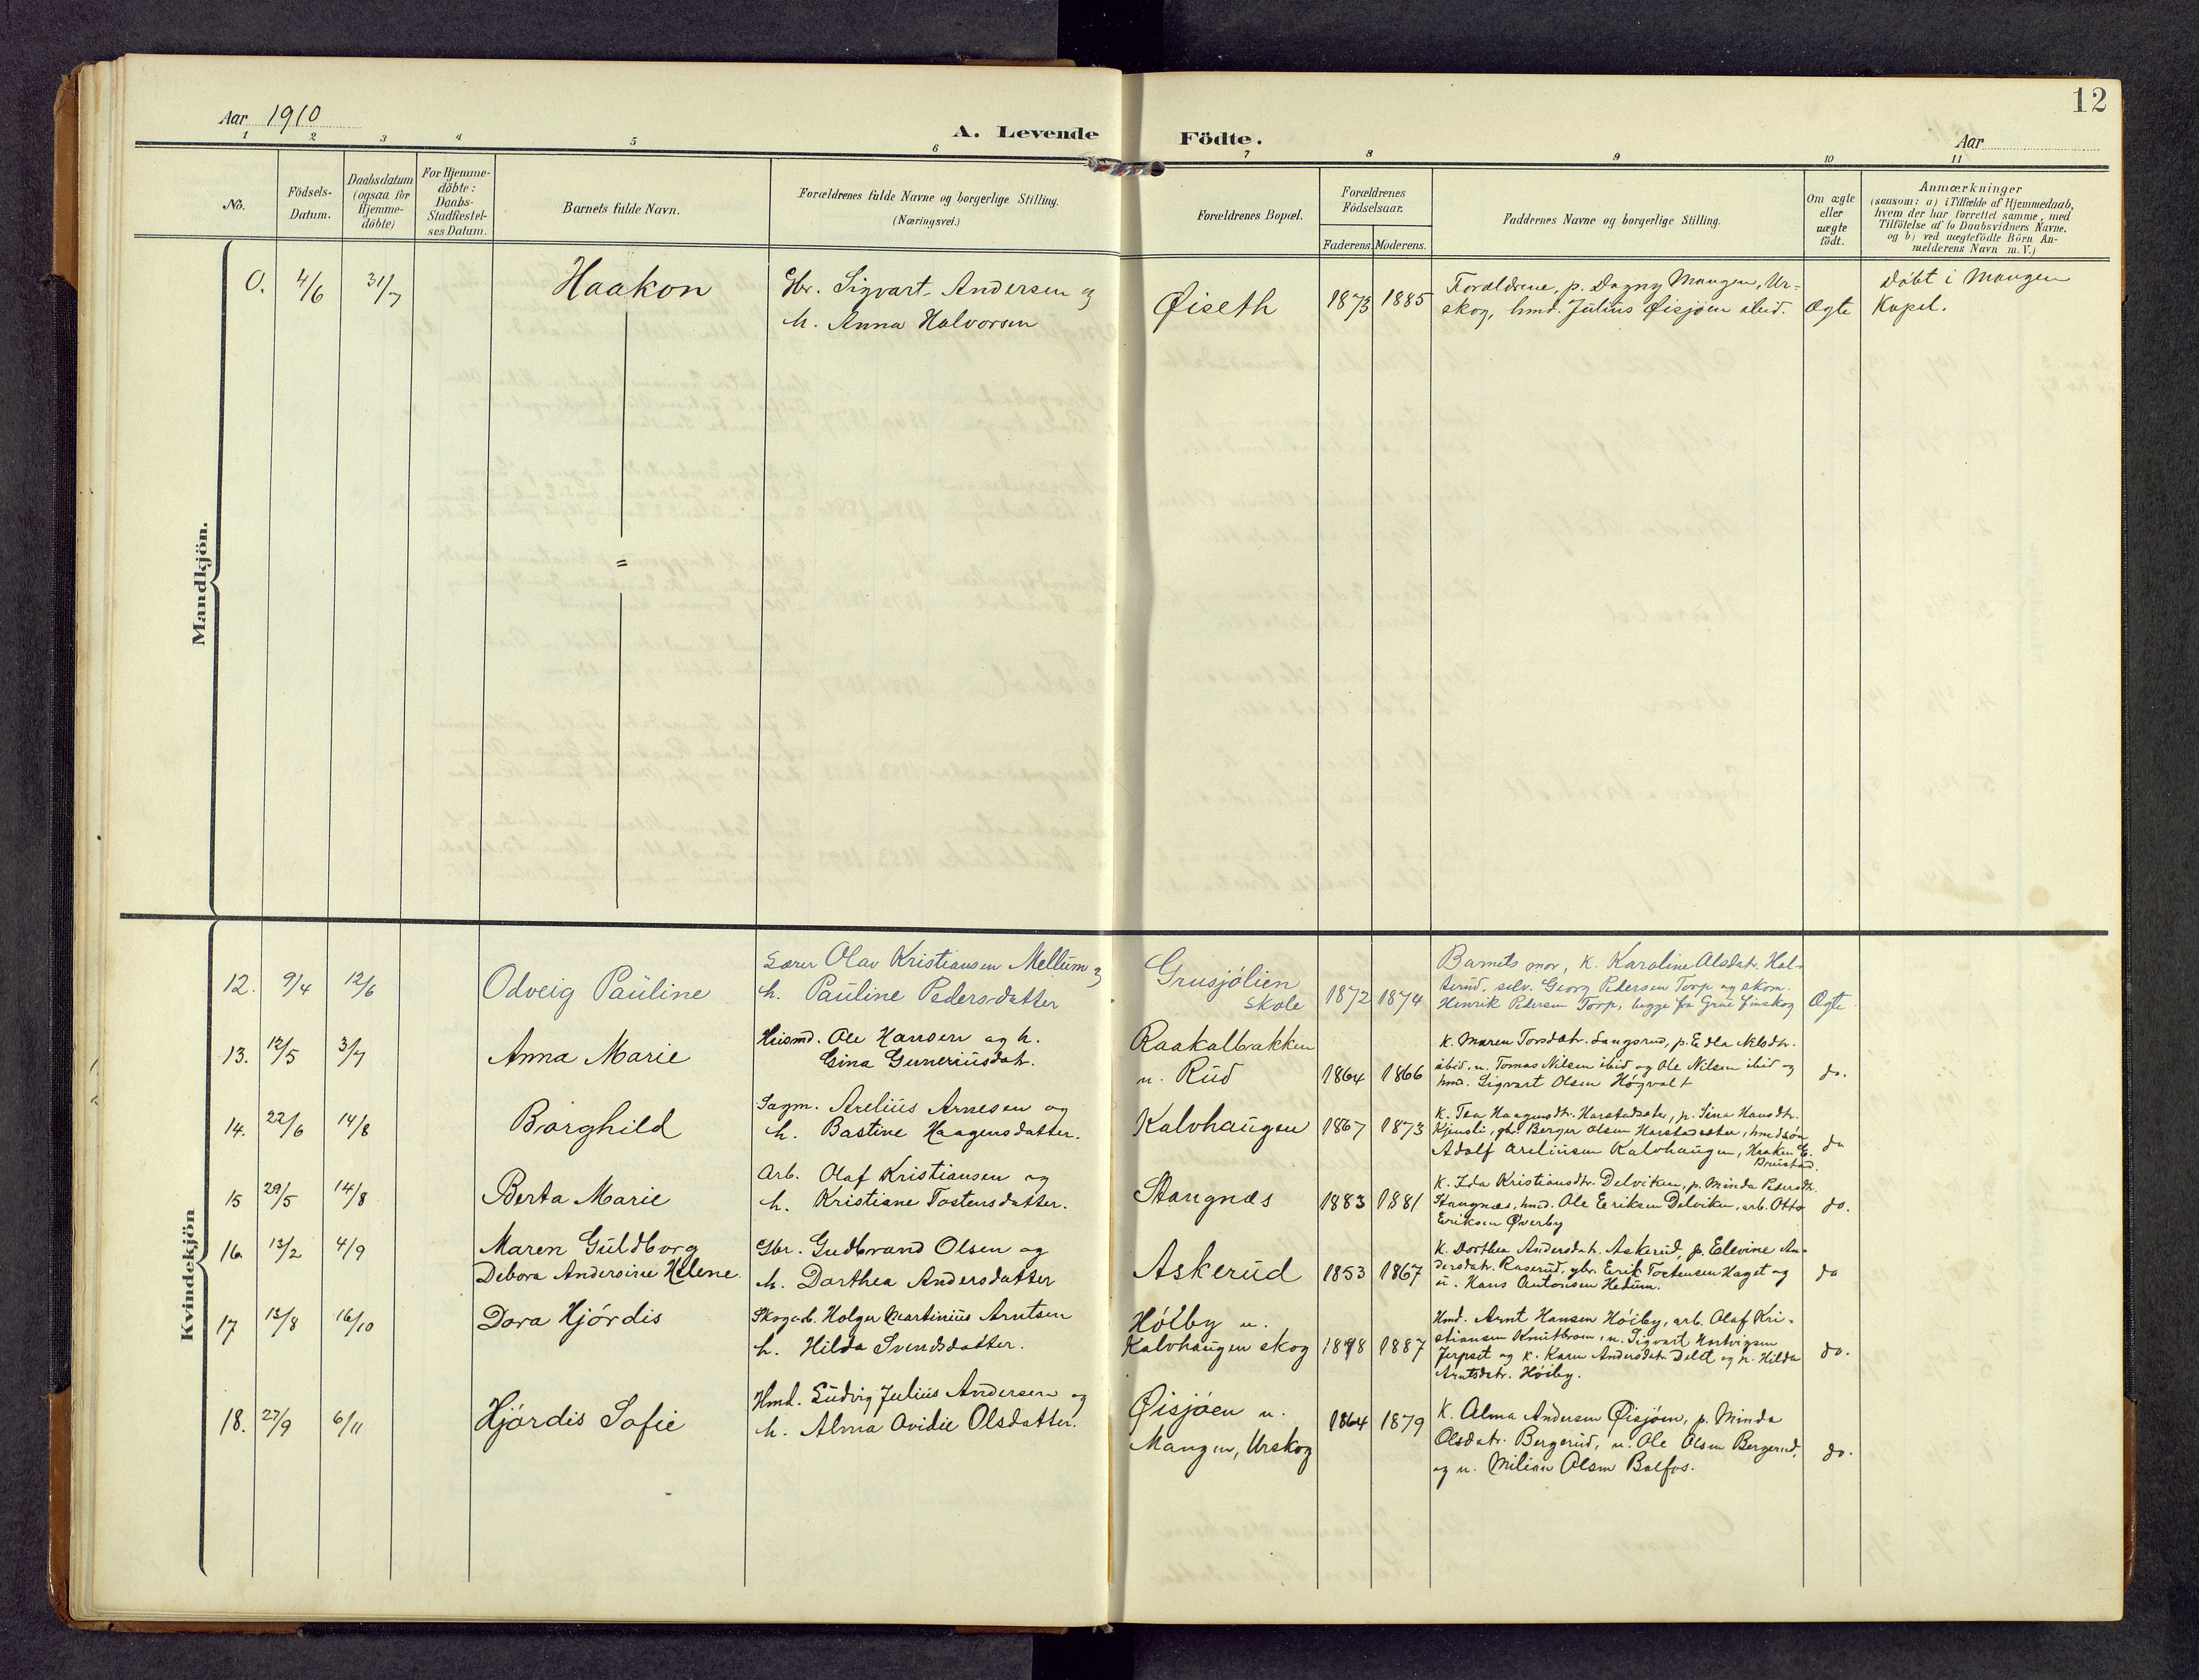 12
Aar 1910
A. Levende Födte.
Aar
1 2 3 4 5 6 7 8 9 10 11
No.
Födsels-
Datum.
Daabsdatum
(ogsaa for
Hjemme-
döbte)
For Hjemme-
döbte:
Daabs-
Stadfæstel-
ses Datum.
Barnets fulde Navn.
Forældrenes fulde Navne og borgerlige Stilling.
(Næringsvei.)
Forældrenes Bopæl.
Forældrenes
Födselsaar.
Faderens. Moderens.
Faddernes Navne og borgerlige Stilling.
Om ægte
eller
uægte
födt.
Anmærkninger
(saasom: a) i Tilfælde af Hjemmedaab,
hvem der har forrettet samme, med
Tilföielse af to Daabsvidners Navne.
og b) ved uægtefödte Börn An-
melderens Navn m. V.)
Mandkjön.
0. 4/6 31/7 Haakon
Gbr. Sigvart Andersen og
h. Anna Halvorsen
Øiseth 1873 1885
Forældrene, p. Dagny Mangen, Ur-
skog, hmd. Julius Øisjøen ibid.
Ægte
Døbt i Mangen
Kapel.
=
Kvindekjön
12. 9/4 12/6 Odveig Pauline
Lærer Olav Kristiansen Mellum og
h. Pauline Pedersdatter
Grusjølien
Skole
1872 1874
Barnets mor, K. Karoline Olsdatr. Hal-
terud, selv. Georg Pedersen Torp og skom.
Henrik Pedersen Torp, begge fra Grue Finskog
Ægte
13. 12/5 3/7 Anna Marie
Husmd. Ole Hansen og h.
Gina Guneriusdatr.
Raakalbakken
u. Rud
1864 1866
K. Maren Torsdatr. Langsrud, p. Edla Nilsdtr.
ibid, u. Tomas Nilsen ibid og Ole Nilsen ibid og
hmd. Sigvart Olsen Høgvalt
do.
14. 22/6 14/8 Borghild
Sagm. Arelius Arnesen og
h. Bastine Haagensdatter.
Kalvhaugen 1867 1873
K. Tea Haagensdtr. Harstadsæter, p. Sina Hansdtr.
Kjensli, gbr. Berger Olsen Harstadsæter, hmdsøn
Adolf Areliusen Kalvhaugen, Haaken E.
do
15 29/5 14/8 Berta Marie
Arb. Olaf Kristiansen og
h. Kristiane Tostensdatter.
Stangnæs 1883 1881
K. Ida Kristiansdtr. Delviken, p. Minda Pedersdtr.
Stangnæs, hmd. Ole Eriksen Delviken, arb. Otto
Eriksen Øverby
do.
16. 13/2 4/9 Maren Guldborg
Debora Andersine Helene
Gbr. Gudbrand Olsen og
h. Dorthea Andersdatter
Askerud 1853 1867
K. Dorthea Andersdatr. Askerud, p. Elevine An-
dersdatr. Raserud, gbr. Erik Tostensen Haget og
u. Hans Antonsen Hedum.
do
17 13/8 16/10 Dora Hjørdis
Skogarb. Holger Martinius Arntsen
h. Hilda Svendsdatter.
Høiby u.
Kalvhaugen skog
1878 1887
Hmd. Arnt Hansen Høiby, arb. Olaf Kri-
stiansen Knutbroen, u. Sigvart Hartvigsen
Jerpset og K. Karen Andersdatr. Delet og p. Hilda
Arntsdatr. Høiby.
do.
18. 27/9 6/11 Hjørdis Sofie
Hmd. Ludvig Julius Andersen og
h. Alma Ovidie Olsdatter.
Øisjøen u.
Mangen, Urskog
1864 1879
K. Alma Andersen Øisjøen, p. Minda
Olsdatr. Bergerud, u. Ole Olsen Bergerud,
og u. Milian Olsen Bolfos.
do.